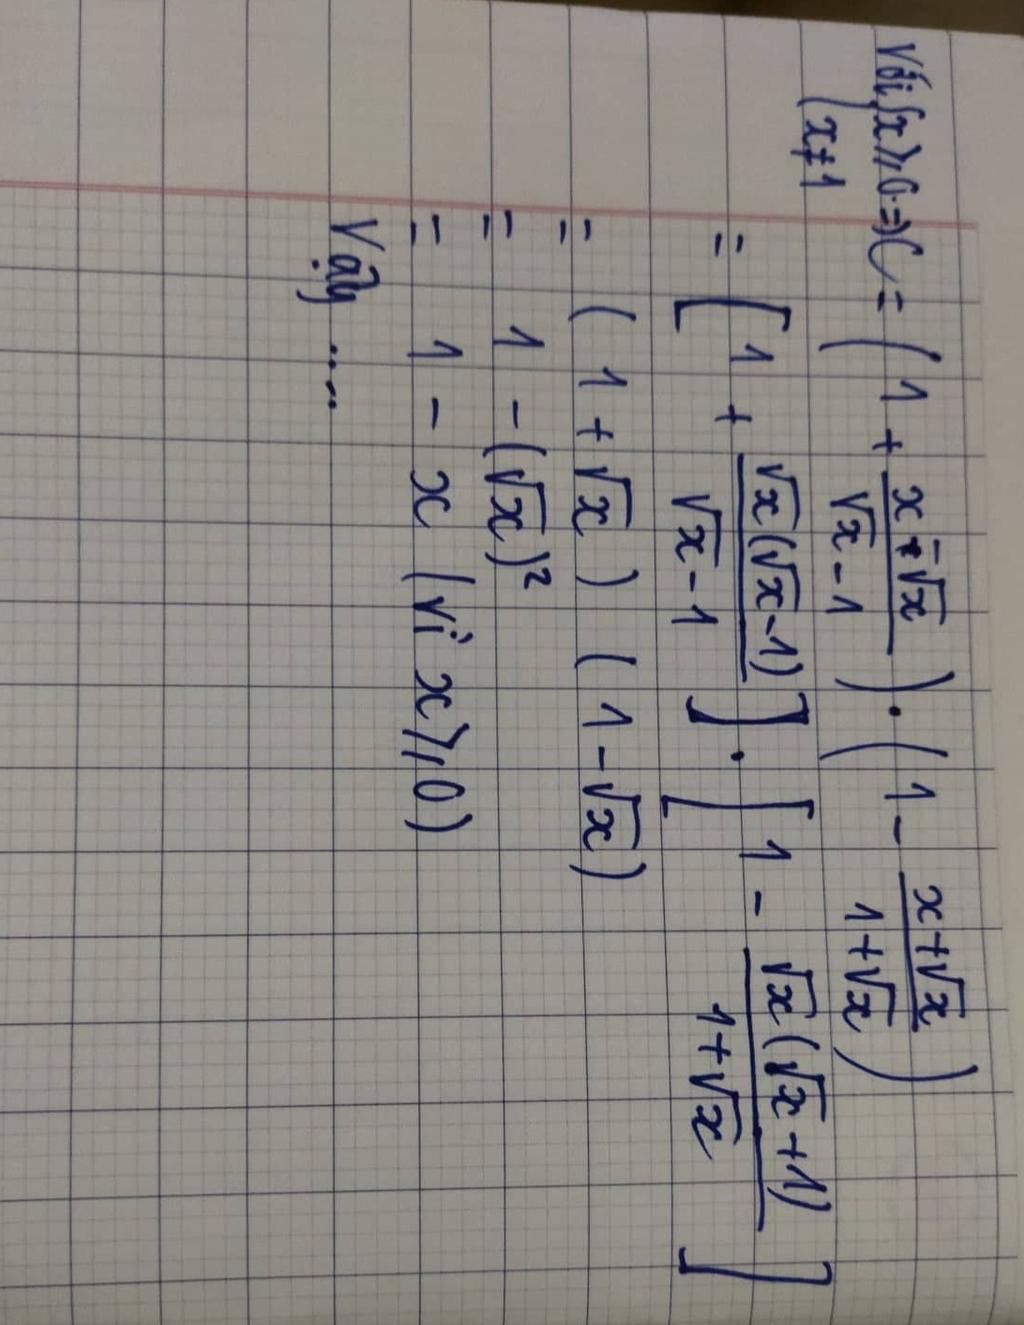 Với { x ⩾ 0 => C = ( 1 + (x - √x)/(√x - 1) ) . ( 1 - (x + √x)/(1 + √x) )
x ≠ 1
= [ 1 + √x(√x - 1)/(√x - 1) ] . [ 1 - √x(√x + 1)/(1 + √x) ]
= ( 1 + √x ) ( 1 - √x )
= 1 - (√x)²
= 1 - x (vì x ⩾ 0)
Vậy ....